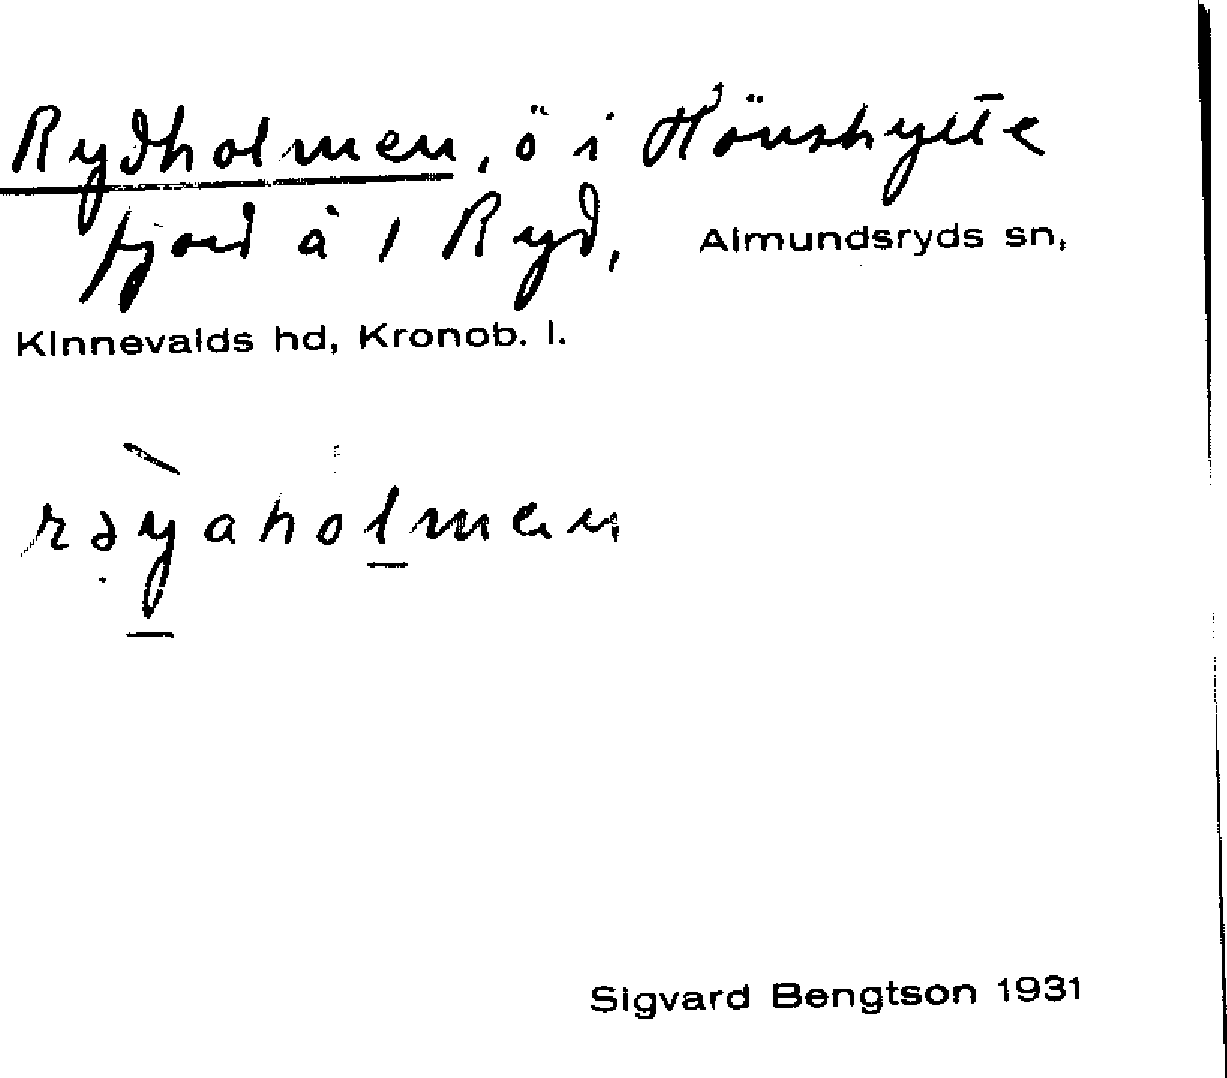 Rydholmen, ö i Hönshylte
fjord å 1 Ryd, Almundsryds sn,
Kinnevalds hd, Kronob. l.
rəyaholmen
Sigvard Bengtson 1931